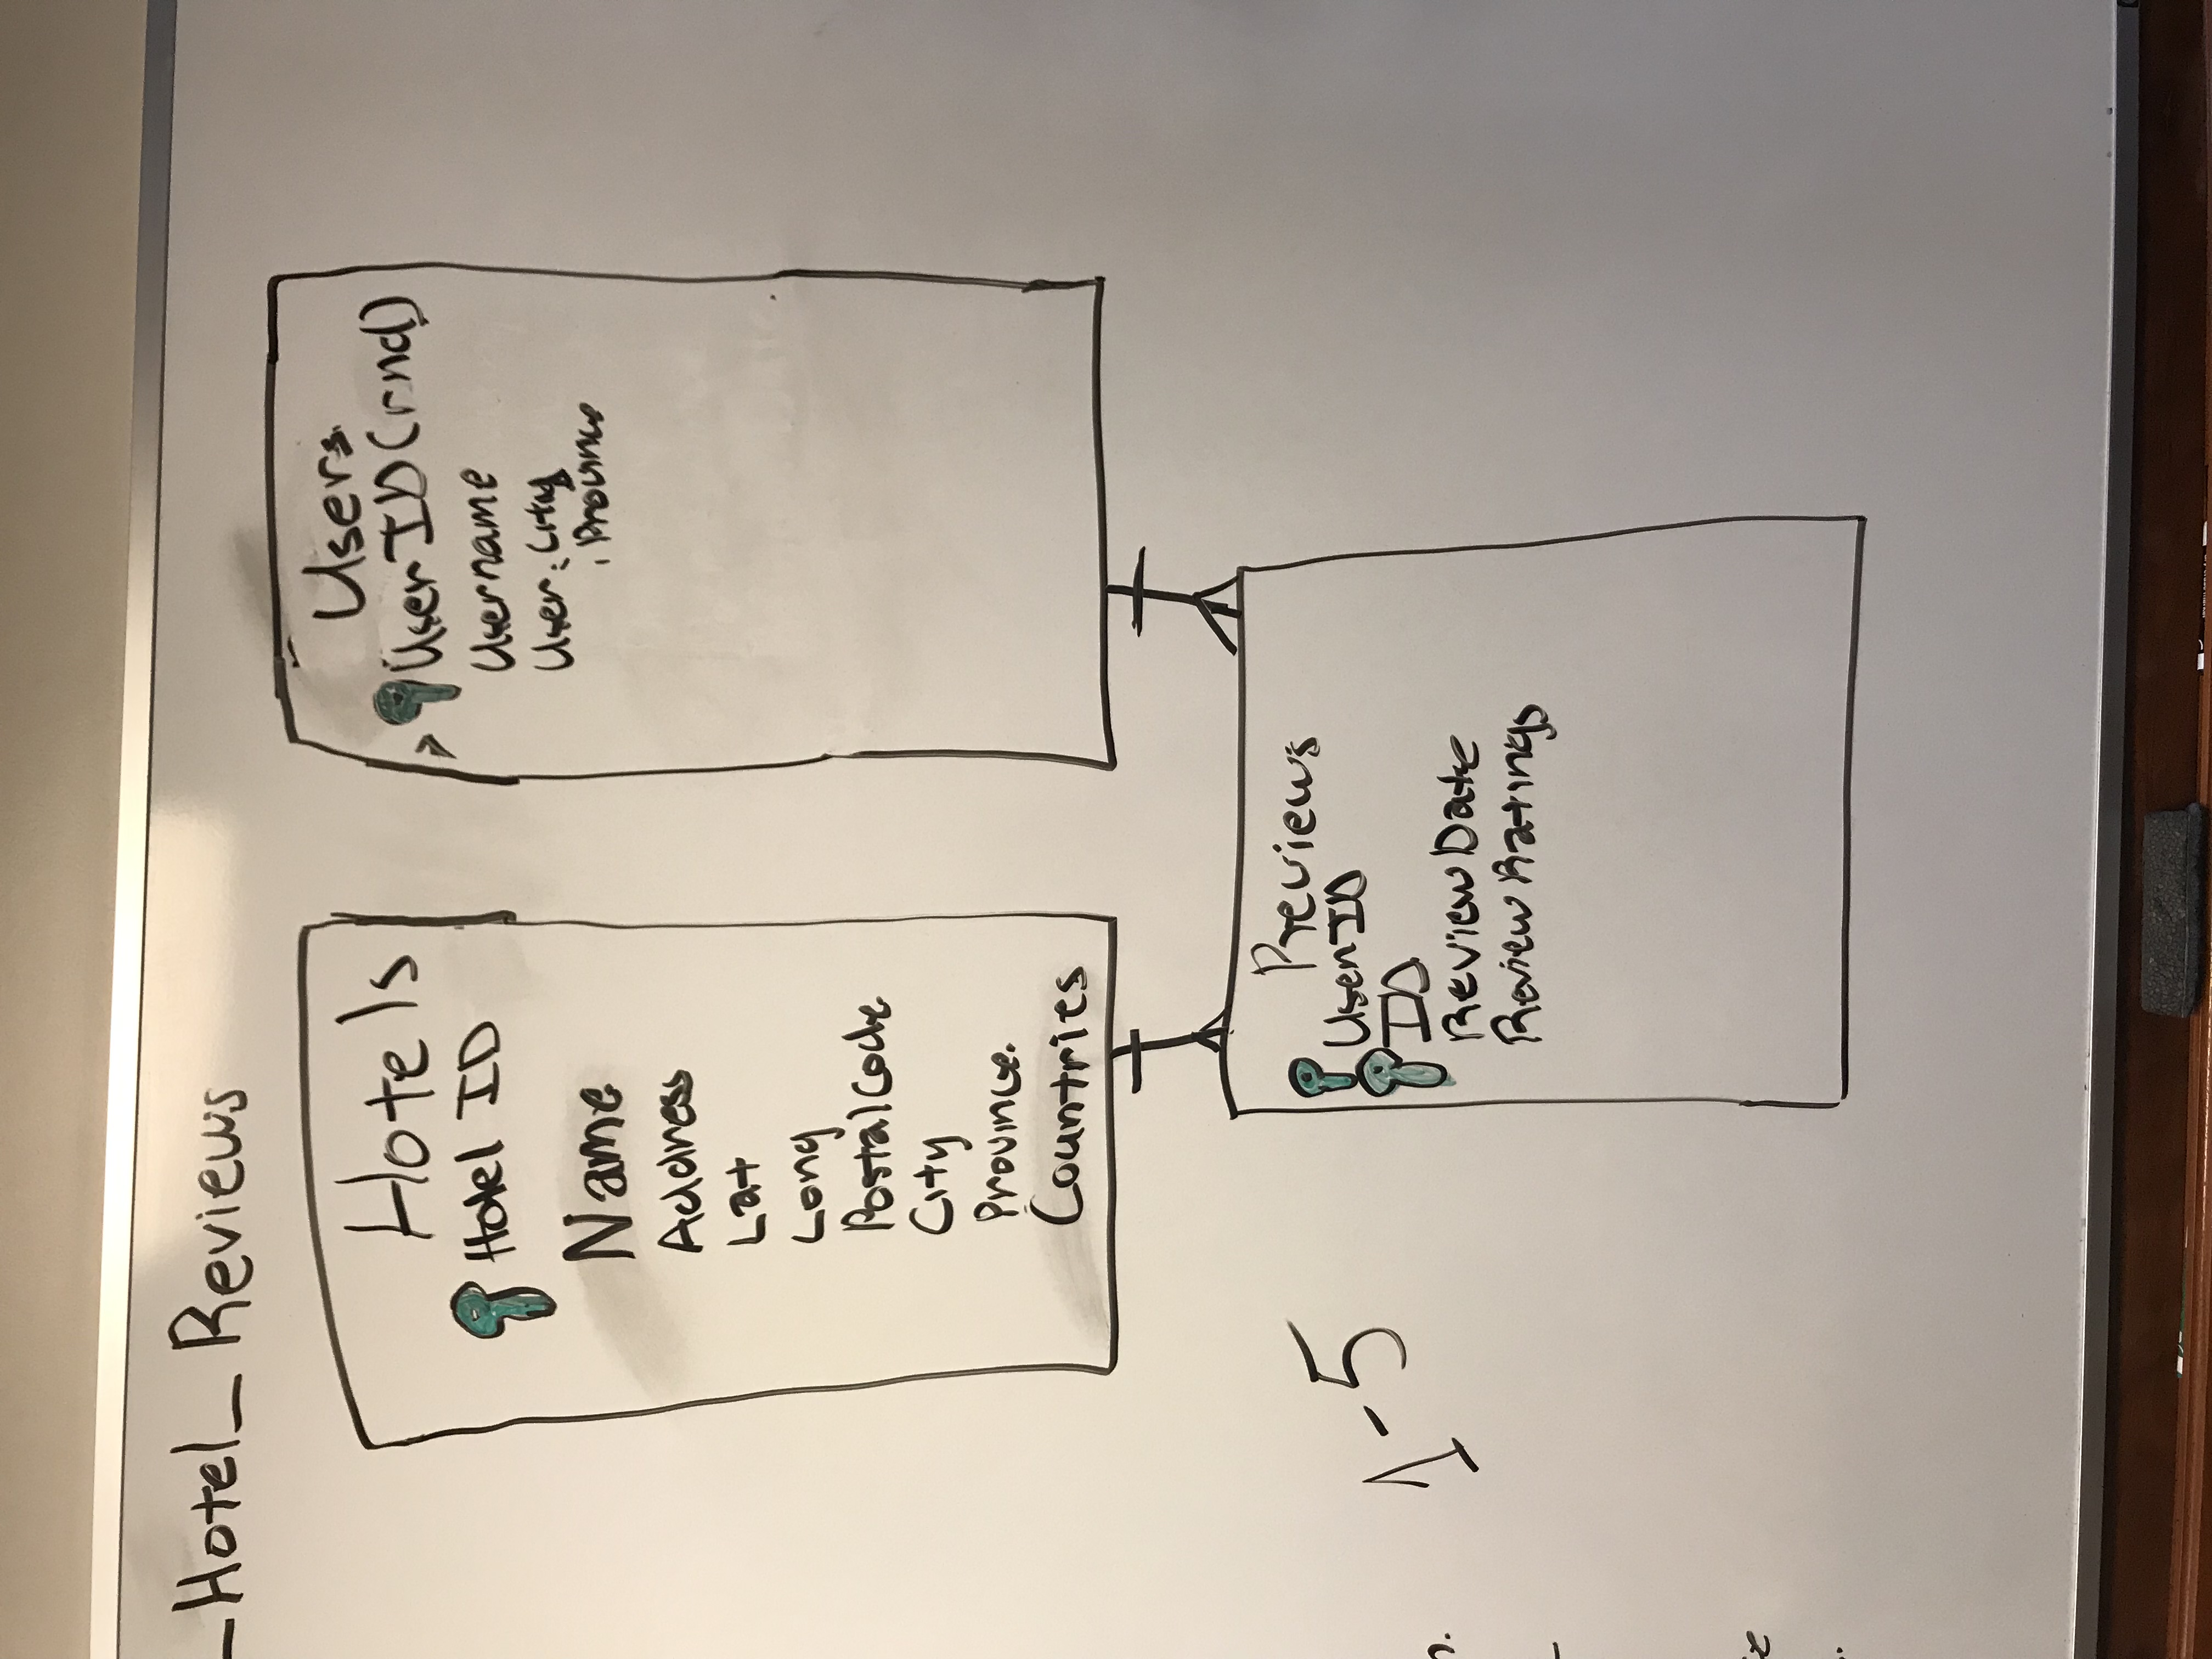 _Hotel_Reviews
Hotels
Hotel ID
Name
Address
Lat
Long
Postal Code
City
Province.
Countries
Users
User ID (rnd)
Username
User: City
: Province
1-5
Previews
User ID
ID
Review Date
Review Ratings